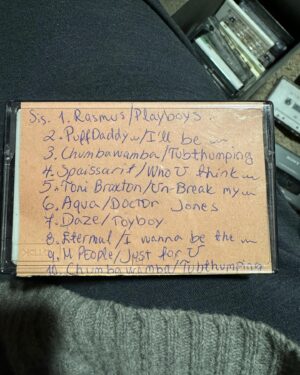 Sis. 1. Rasmus/Playboys
2. Puff Daddy/I'll be
3. Chumbawamba/Tubthumping
4. Spaissarit/Who U think
5. Toni Braxton/Un-Break my
6. Aqua/Doctor Jones
7. Daze/Toyboy
8. Eternal/I wanna be the
9. M People/Just for U
10. Chumbawamba/Tubthumping